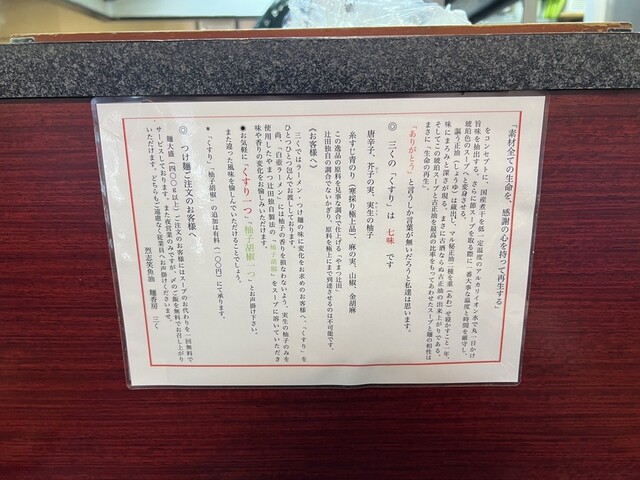 「素材全ての生命を、感謝の心を持って再生する」
をコンセプトに、国産煮干を低一定温度のアルカリイオン水で丸一日かけ
旨味を抽出する。さらに節スープを取る際に一番大事な温度と時間を厳守し、
琥珀色のスープへと変身させる。
謳う正油（しょうゆ）は蔵出し、マル秘正油二種を重（あわ）せ寝かすこと一年、
味にまろみと深さが現る。まさに古酒ならぬ古正油の出来上がりである。
そしてこの琥珀スープと古正油を最高の比率をもってあわせたスープと麺の相性は
まさに、「生命の再生」。
「ありがとう」と言うしか言葉が無いだろうと私達は思います。
◎ 三くの「くすり」は 七味 です
唐辛子、芥子の実、実生の柚子
糸すじ青のり、（寒採り極上品）、麻の実、山椒、金胡麻
この逸品の原料を見事な調合で仕上げる「やまつ辻田」
辻田独自の調合でないかぎり、原料を極上にまで到達させるのは不可能です。
《お客様へ》
三くではラーメン・つけ麺の味に変化をお求めのお客様へ、「くすり」を
ひとつひとつ包んでお渡ししております。
尚、「白壺ラーメン」には柚子の香りを損なわないよう、実生の柚子のみを
使用したやまつ辻田独自製法の「柚子胡椒」をスープに溶いていただき
味や香りの変化をお愉しみいただけます。
●お気軽に「くすり一つ」「柚子胡椒一つ」とお声掛け下さい。
また違った風味を愉しんでいただけることでしょう。
＊「くすり」「柚子胡椒」の追加は有料（一〇〇円）にて承ります。
◎ つけ麺ご注文のお客様へ
麺大盛（四〇〇ｇ以上）ご注文のお客様にはスープのお代わりを一回無料で
サービスしております。また夜営業のみですが、〆のご飯を無料でお召し上がり
いただけます。どちらもご遠慮なく従業員へお声掛けくださいませ。
烈志笑魚油 麺香房 三く